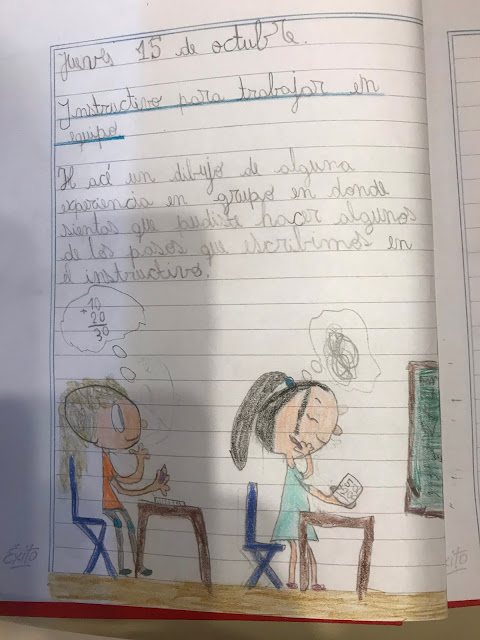 Jueves 15 de octubre.
Instructivo para trabajar en
equipo
H acé un dibujo de alguna
experiencia en grupo en donde
sientas que pudiste hacer algunos
de los pasos que escribimos en
el instructivo.
10
+ 20
30
Éxito